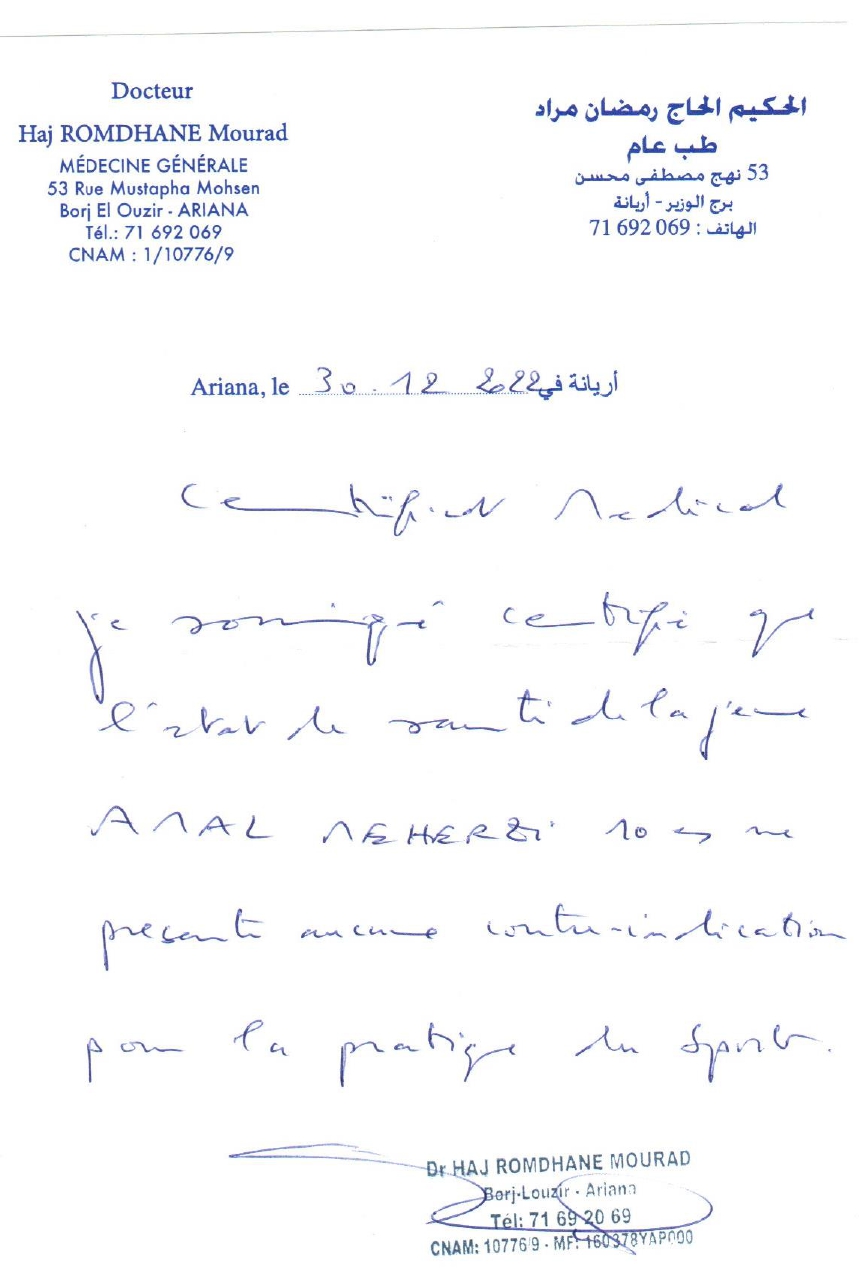 Docteur
Haj ROMDHANE Mourad
MÉDECINE GÉNÉRALE
53 Rue Mustapha Mohsen
Borj El Ouzir - ARIANA
Tél.: 71 692 069
CNAM : 1/10776/9
الحكيم الحاج رمضان مراد
طب عام
53 نهج مصطفى محسن
برج الوزير - أريانة
الهاتف : 069 692 71
Ariana, le 30.12 2022 أريانة في
Certificat Medical
je soussigné certifie que
l'état de santé de la jeune
AMAL MEHERZI 10 ans ne
presente aucune contre-indication
pour la pratique du Sport.
Dr HAJ ROMDHANE MOURAD
Borj-Louzir - Ariana
Tél: 71 69 20 69
CNAM: 10776/9 - MF: 160378YAP000